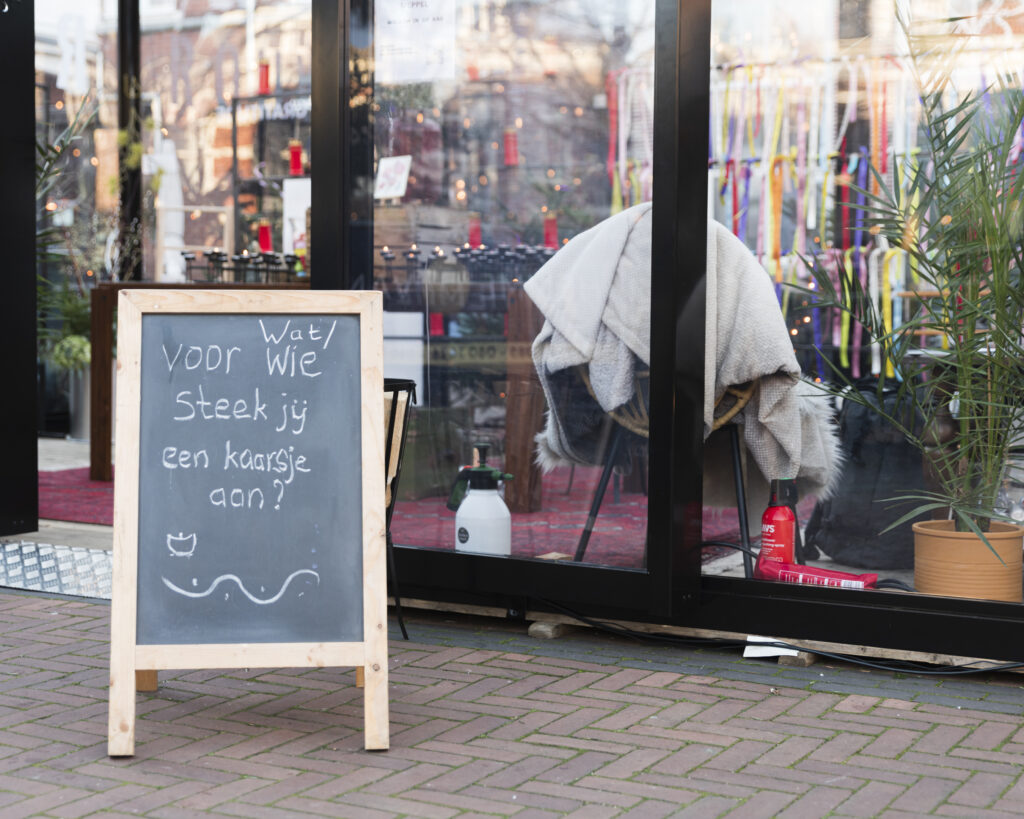 Wat/
Voor Wie
Steek jij
een kaarsje
aan?